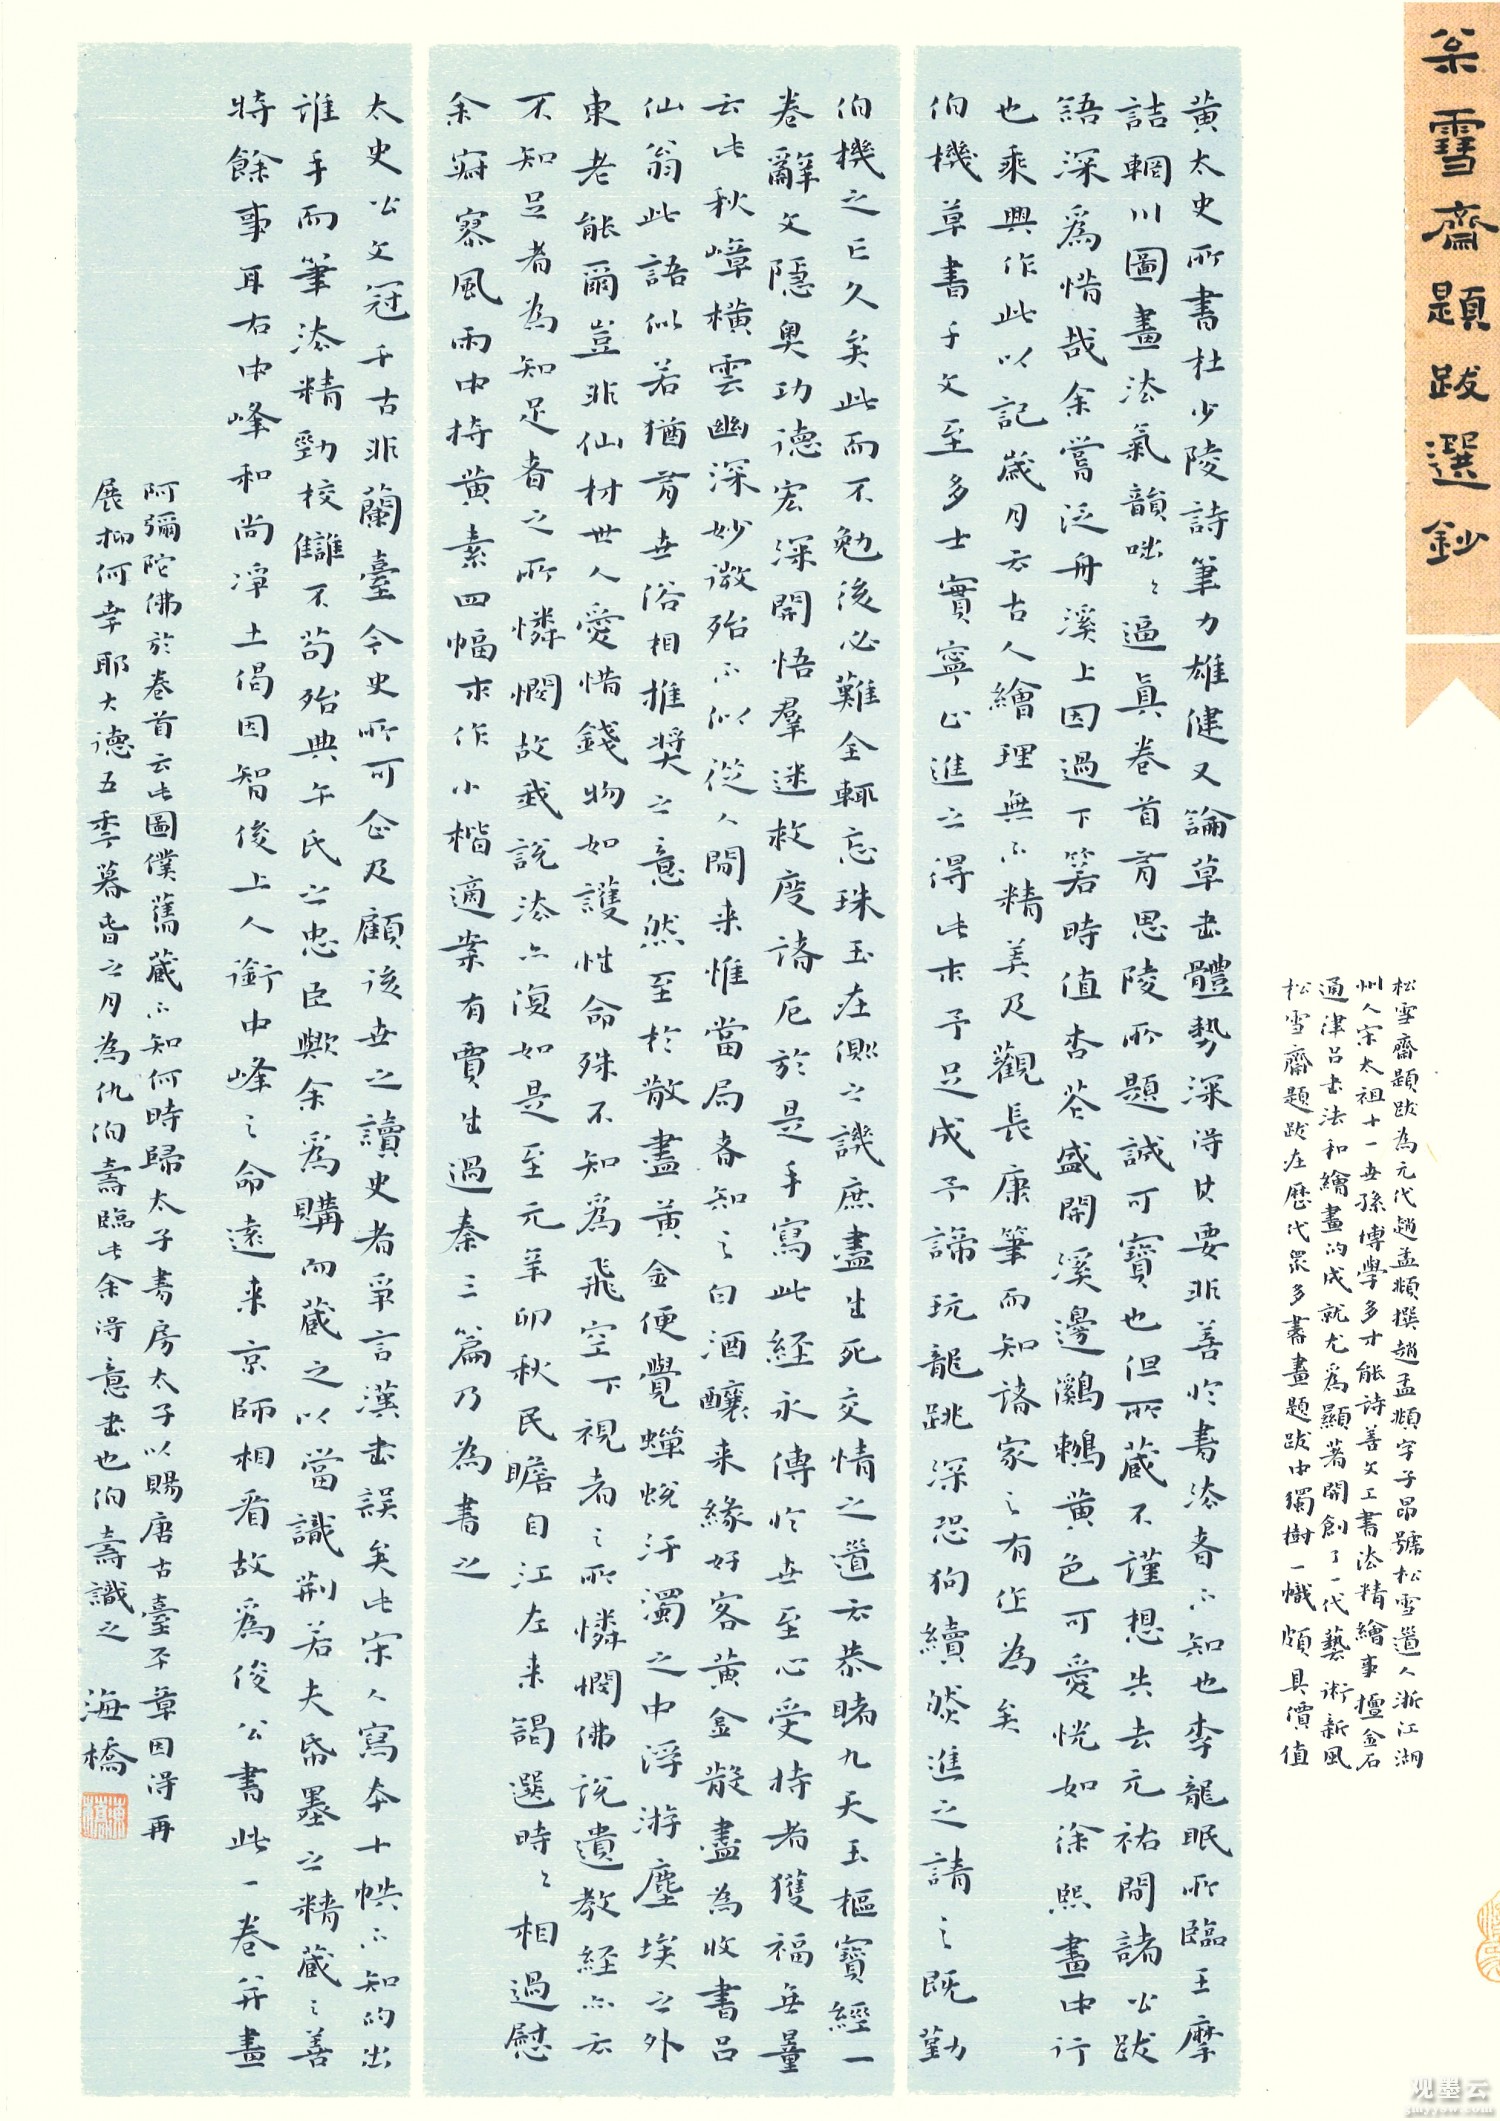 松雪齋題跋選鈔
松雪齋題跋為元代趙孟頫撰趙孟頫字子昂號松雪道人浙江湖
州人宋太祖十一世孫博學多才能詩善文工書法精繪事擅金石
通津呂書法和繪畫的成就尤為顯著開創了一代藝術新風
松雪齋題跋在歷代眾多書畫題跋中獨樹一幟頗具價值
黃太史所書杜少陵詩筆力雄健又論草書體勢深得其要非善於書法者不知也李龍眠所臨王摩
詰輞川圖畫法氣韻咄咄逼真卷首有思陵所題誠可寶也但所藏不謹想失去元祐間諸公跋
語深為惜哉余嘗泛舟溪上因過下箬時值杏花盛開溪邊鸂鶒黃色可愛恍如徐熙畫中行
也乘興作此以記歲月云古人繪理無不精美及觀長康筆而知諸家之有作為矣
伯機草書千文至多士實寧止進之得此求予足成予諦玩龍跳深恐狗續然進之請之既勤
伯機之亡久矣此而不勉後必難全輒忘珠玉在側之譏庶盡生死交情之道云恭睹九天玉樞寶經一
卷辭文隱奧功德宏深開悟羣迷救度諸厄於是手寫此経永傳於世至心受持者獲福無量
云此秋嶂橫雲幽深妙微殆不似從人間来惟當局者知之白酒釀来緣好客黃金散盡為收書呂
仙翁此語似若猶有世俗相推獎之意然至於散盡黃金便覺蟬蛻汙濁之中浮游塵埃之外
東老能爾豈非仙材世人愛惜錢物如護性命殊不知為飛空下視者之所憐憫佛說遺教経亦云
不知足者為知足者之所憐憫故我說法亦復如是至元辛卯秋民瞻自江左来謁選時時相過慰
余寂寥風雨中持黃素四幅求作小楷適案有賈生過秦三篇乃為書之
太史公文冠千古非蘭臺令史所可企及顧後世之讀史者爭言漢書誤矣此宋人寫本十帙不知的出
誰手而筆法精勁校讎不苟殆典午氏之忠臣歟余為購而藏之以當識荆若夫帋墨之精藏之善
特餘事耳右中峰和尚淨土偈因智俊上人銜中峰之命遠来京師相看故為俊公書此一卷并畫
阿彌陀佛於卷首云此圖僕舊藏不知何時歸太子書房太子以賜唐古臺平章因得再
展抑何幸耶大德五季暮春之月為仇伯壽臨此余得意書也伯壽識之 海橋
观墨云
gmyyow.com